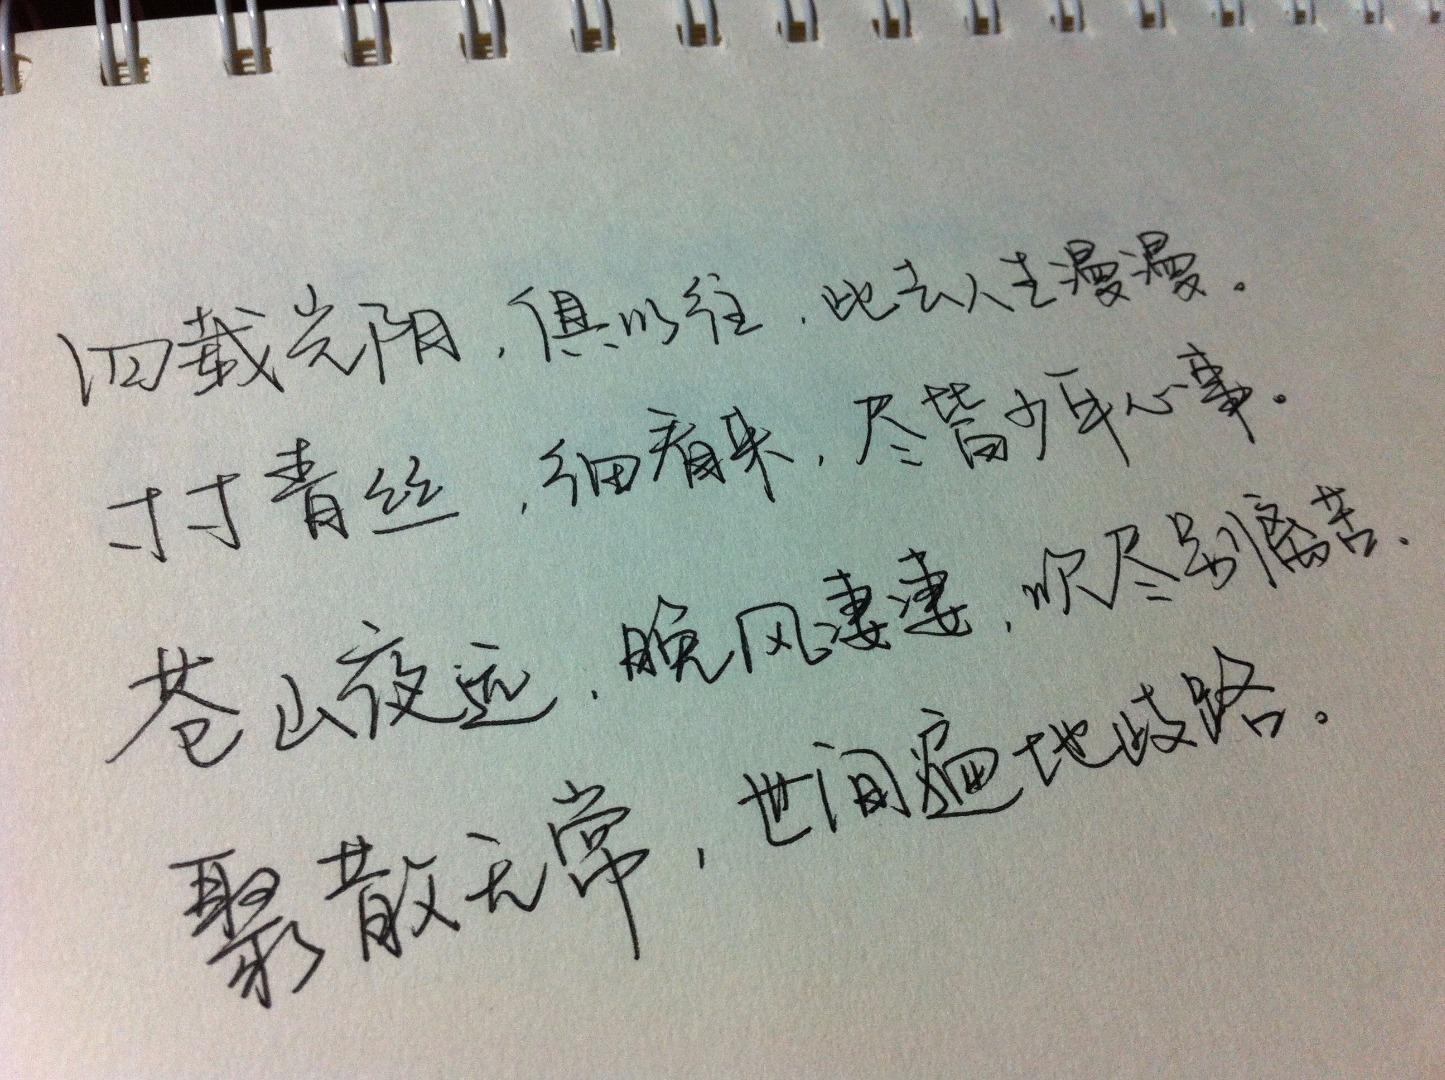 四载光阴，俱以往，此去人生漫漫。
寸寸青丝，细看来，尽皆少年心事。
苍山夜远，晚风凄凄，吹尽别离苦.
聚散无常，世间遍地歧路。